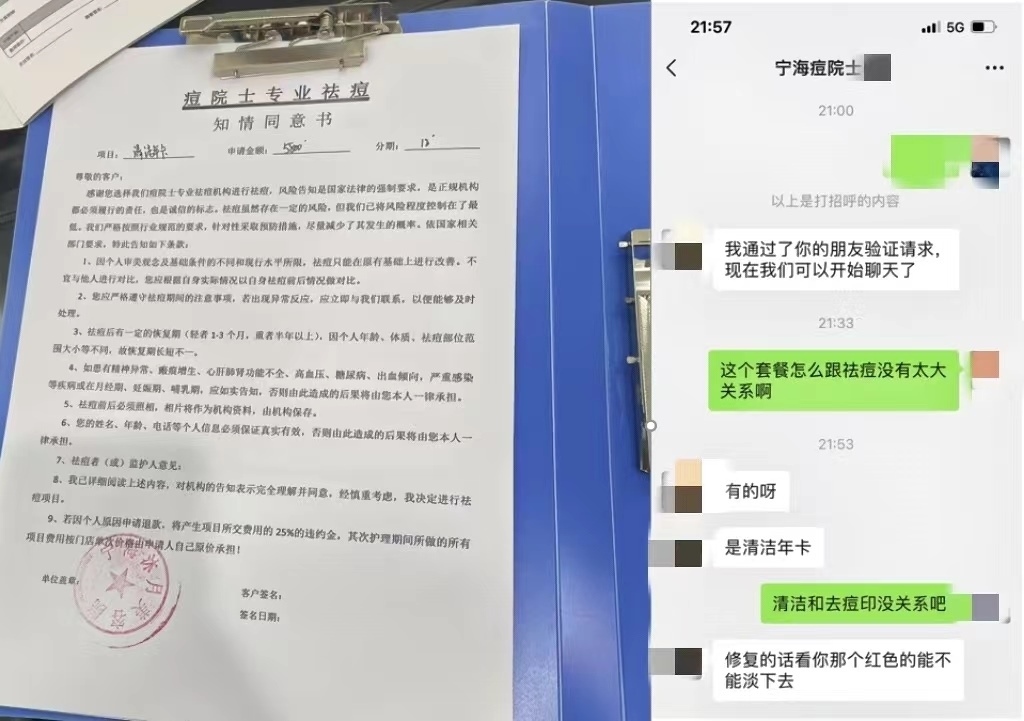 痘院士专业祛痘
知情同意书
项目: 清洁卡 申请金额: 5800 分期: 12
尊敬的客户:
感谢您选择我们痘院士专业祛痘机构进行祛痘，风险告知是国家法律的强制要求，是正规机构
都必须履行的责任，也是诚信的标志。祛痘虽然存在一定的风险，但我们已将风险程度控制在了最
低。我们严格按照行业规范的要求，针对性采取预防措施，尽量减少了其发生的概率。依国家相关
部门要求，特此告知如下条款:
1、因个人审美观念及基础条件的不同和现行水平所限，祛痘只能在原有基础上进行改善。不
宜与他人进行对比，您应根据自身实际情况以自身祛痘前后情况做对比。
2、您应严格遵守祛痘期间的注意事项，若出现异常反应，应立即与我们联系。以便能够及时
处理。
3、祛痘后有一定的恢复期（轻者1-3个月，重者半年以上），因个人年龄、体质、祛痘部位范
围大小等不同，故恢复期长短不一。
4、如患有精神异常、瘢痕增生、心肝肺肾功能不全、高血压、糖尿病、出血倾向，严重感染
等疾病或在月经期、妊娠期、哺乳期，应如实告知，否则由此造成的后果将由您本人一律承担。
5、祛痘前后必须照相，相片将作为机构资料，由机构保存。
6、您的姓名、年龄、电话等个人信息必须保证真实有效，否则由此造成的后果将由您本人一
律承担。
7、祛痘者（或）监护人意见:
8、我已详细阅读上述内容，对机构的告知表示完全理解并同意。经慎重考虑，我决定进行祛
痘项目。
9、若因个人原因申请退款，将产生项目所交费用的25%的违约金，其次护理期间所做的所有
项目费用按门店单次价格由申请人自己原价承担！
单位盖章:
客户签名:
签名日期:
21:57
5G
宁海痘院士
21:00
以上是打招呼的内容
我通过了你的朋友验证请求，
现在我们可以开始聊天了
21:33
这个套餐怎么跟祛痘没有太大
关系啊
21:53
有的呀
是清洁年卡
清洁和去痘印没关系吧
修复的话看你那个红色的能不
能淡下去